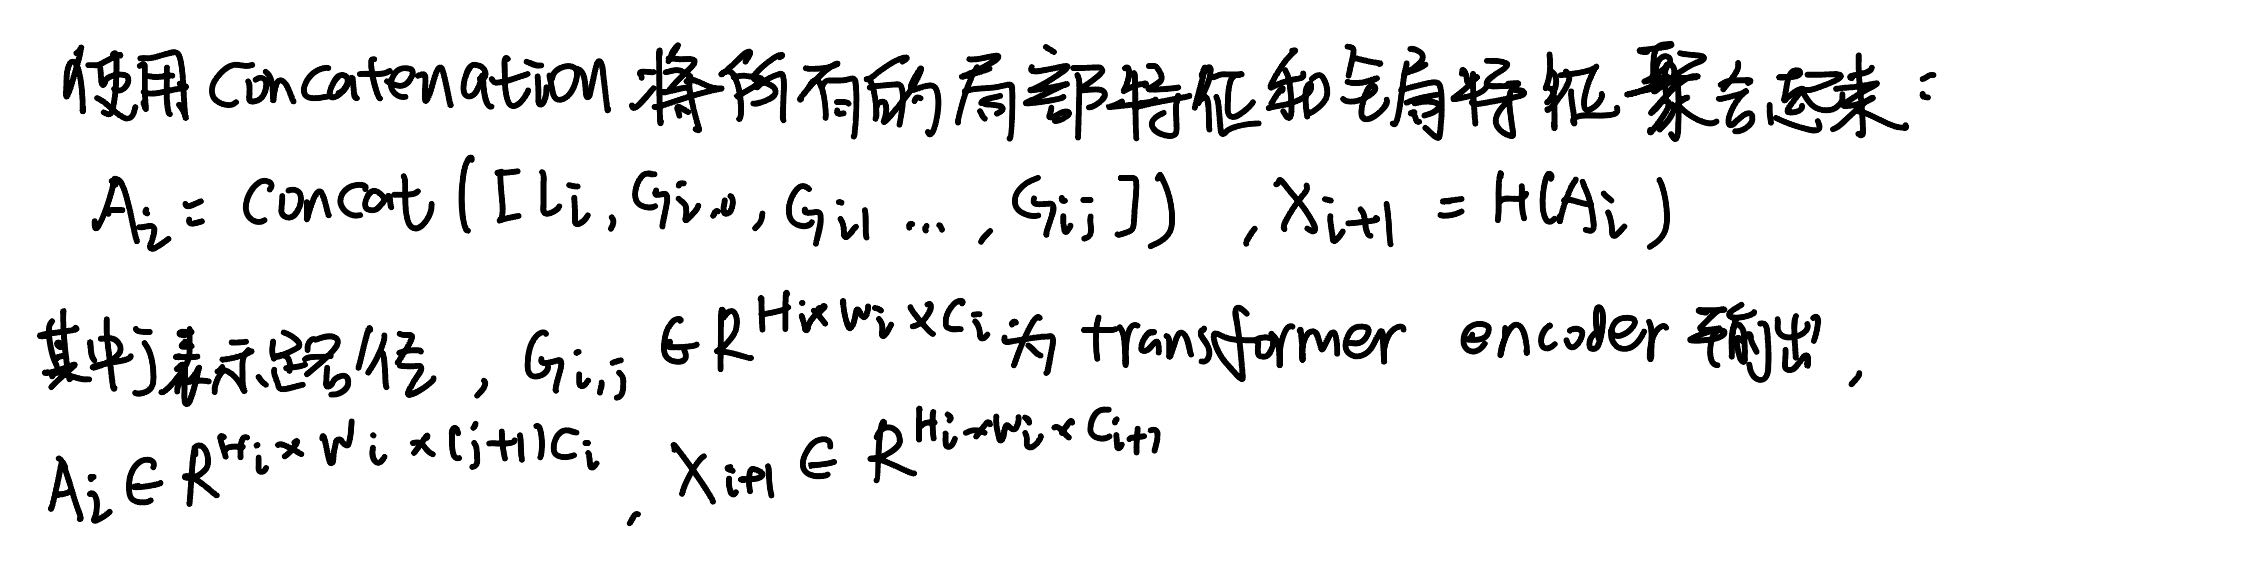 使用concatenation将所有的局部特征和全局特征聚合起来：
A_i = concat([L_i, G_{i,0}, G_{i1} ..., G_{ij}]), X_{i+1} = H(A_i)
其中j表示路径，G_{i,j} ∈ R^{H_i×W_i×C_i}为transformer encoder输出，
A_i ∈ R^{H_i×W_i×(j+1)C_i}, X_{i+1} ∈ R^{H_i×W_i×C_{i+1}}